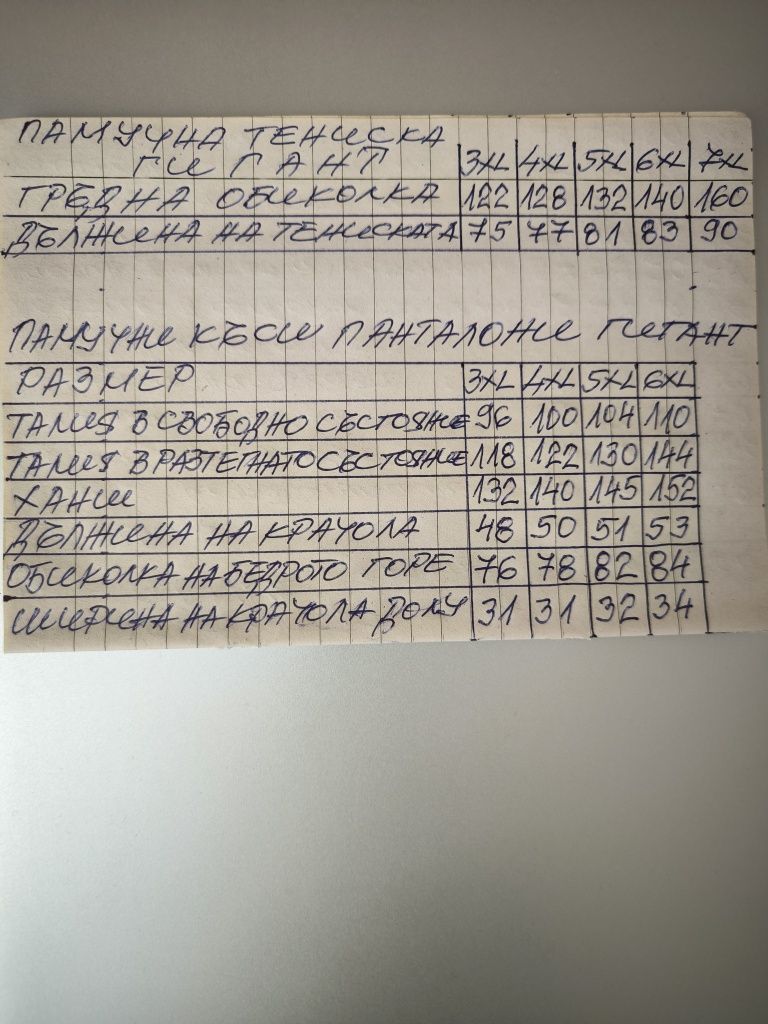 ПАМУЧНА ТЕНИСКА
ГИГАНТ 3XL 4XL 5XL 6XL 7XL
ГРЪДНА ОБИКОЛКА 122 128 132 140 160
ДЪЛЖИНА НА ТЕНИСКАТА 75 77 81 83 90
ПАМУЧНИ КЪСИ ПАНТАЛОНИ ГИГАНТ
РАЗМЕР 3XL 4XL 5XL 6XL
ТАЛИЯ В СВОБОДНО СЪСТОЯНИЕ 96 100 104 110
ТАЛИЯ В РАЗТЕГНАТО СЪСТОЯНИЕ 118 122 130 144
ХАНШ 132 140 145 152
ДЪЛЖИНА НА КРАЧОЛА 48 50 51 53
ОБИКОЛКА НА БЕДРОТО ГОРЕ 76 78 82 84
ШИРИНА НА КРАЧОЛА ДОЛУ 31 31 32 34